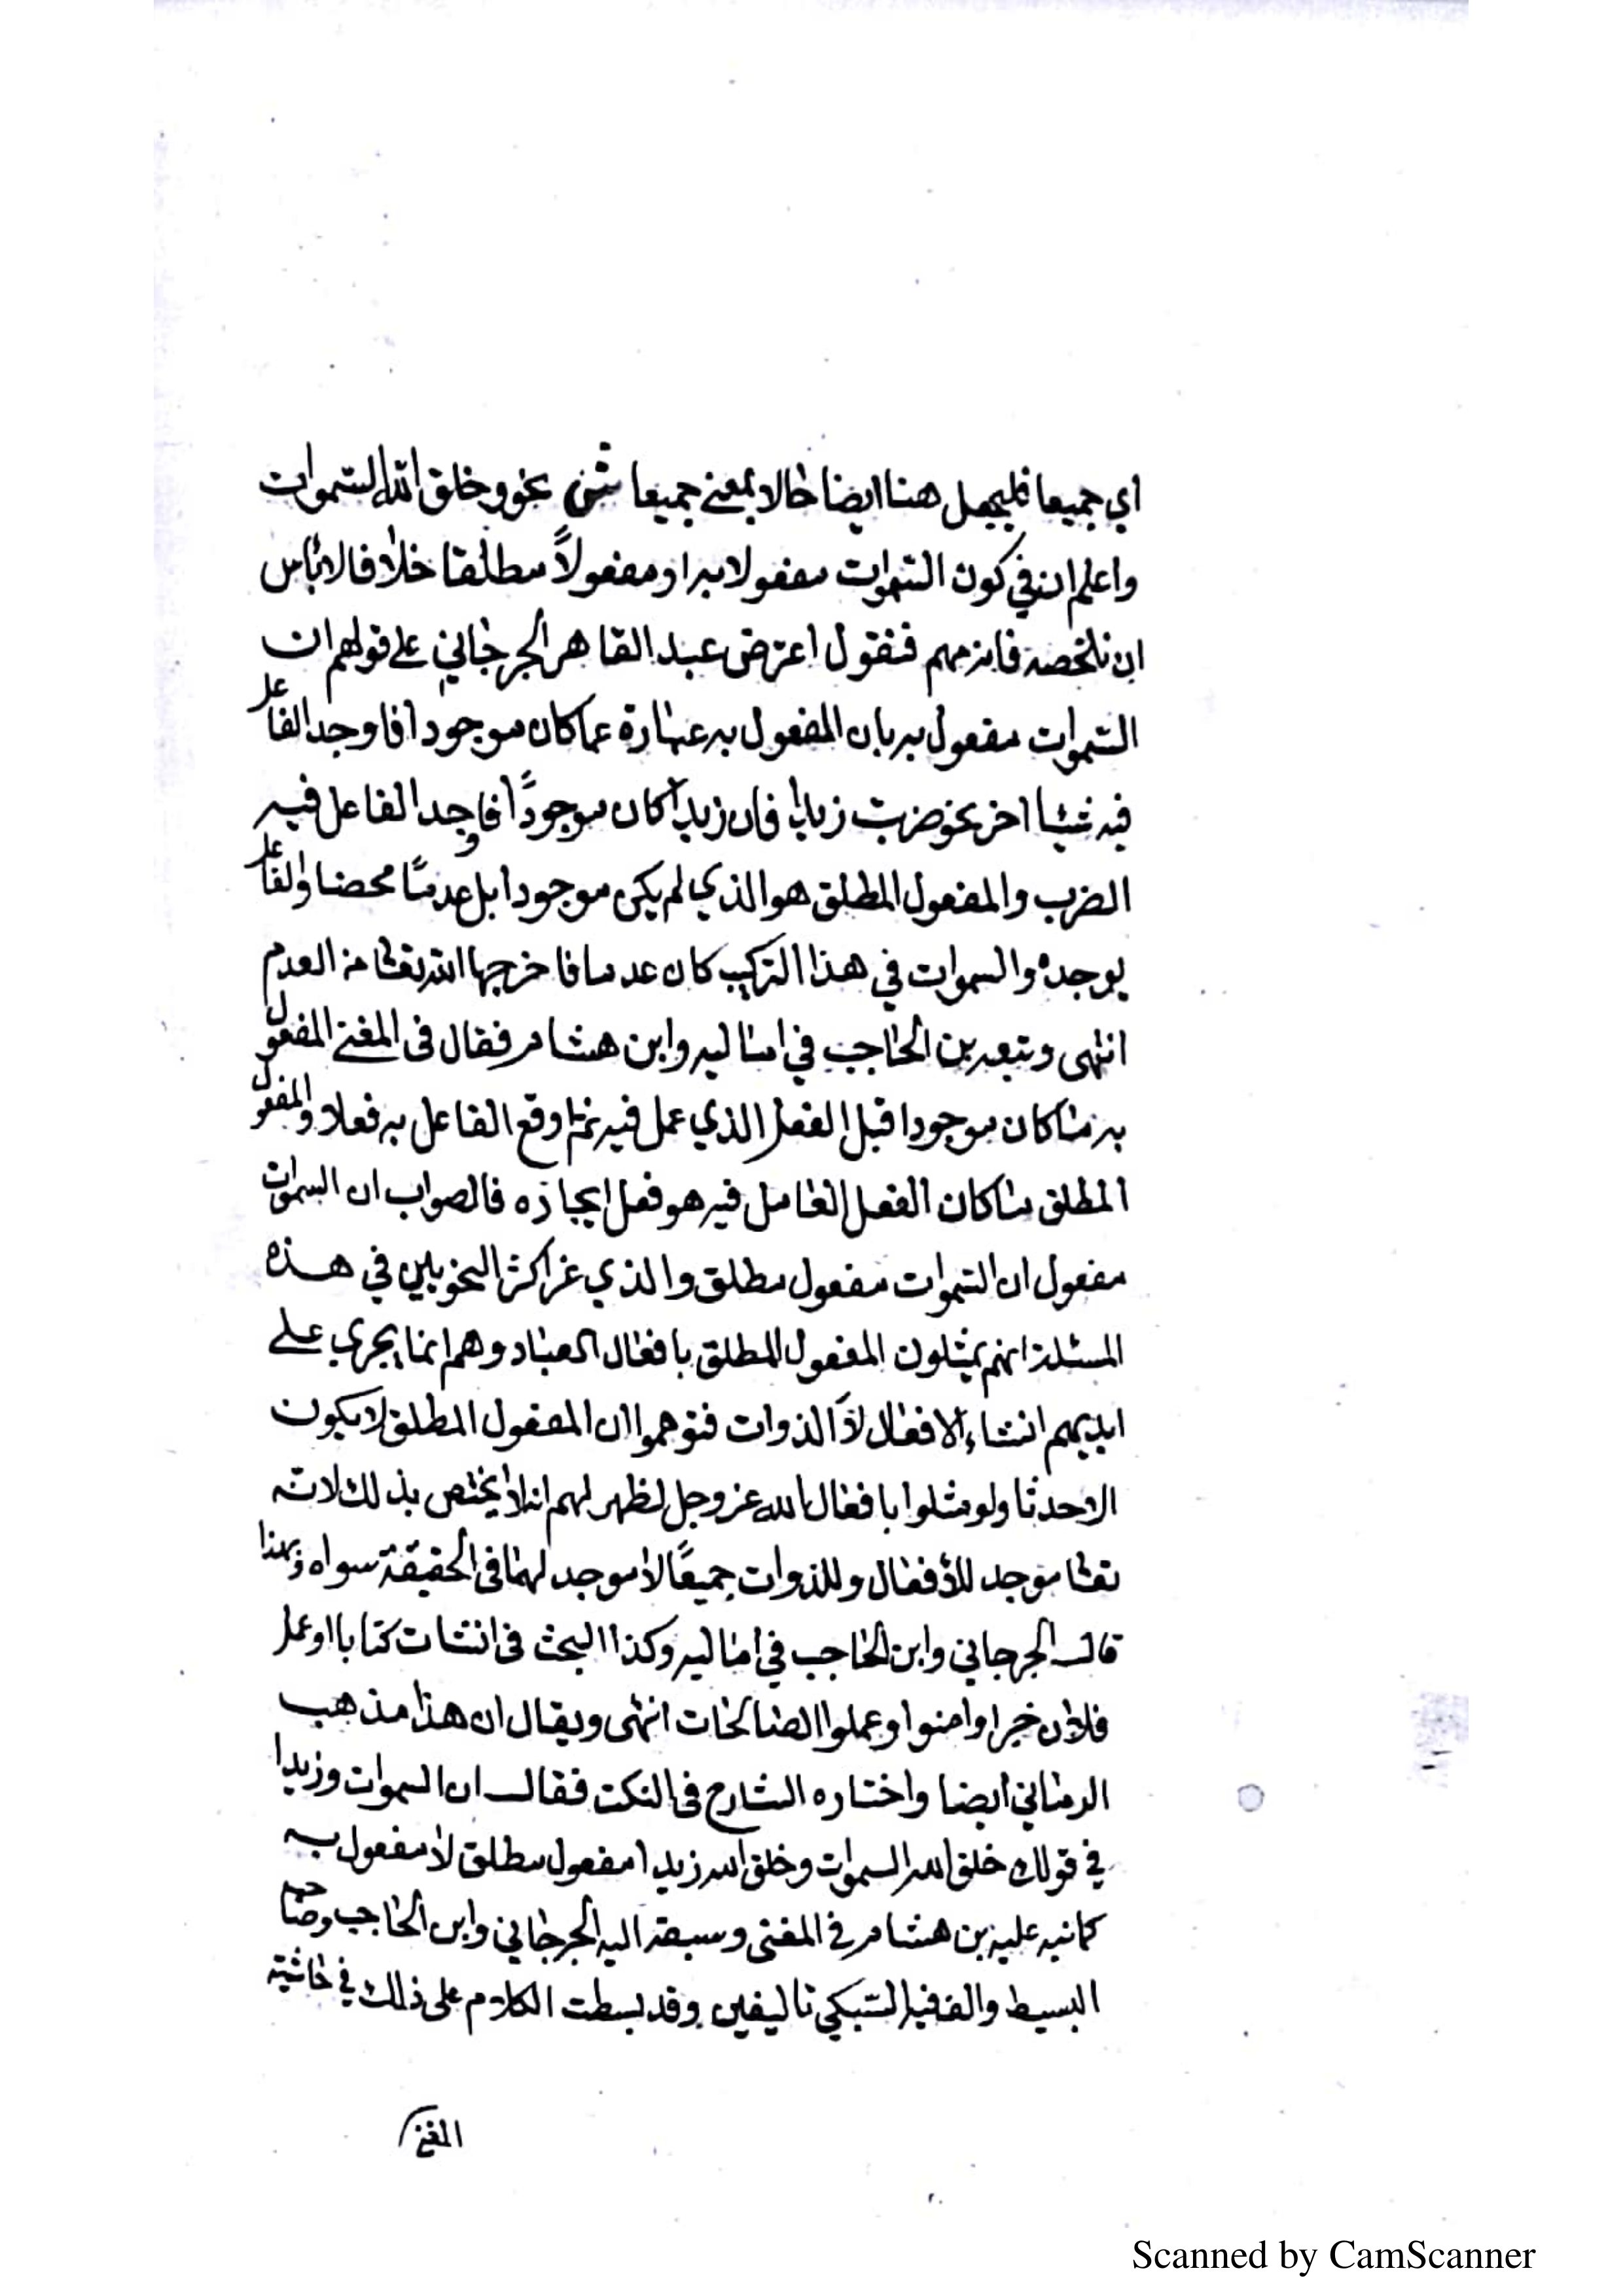 اي جميعا فليجعل هنا ايضا حالا بمعنى جميعا شمنى نحو وخلق الله السموات
واعلم ان في كون السموات مفعولا به او مفعولاً مطلقا خلافا لا باس
ان نلخصه فابزمهم فنقول اعترض عبد القاهر الجرجاني على قولهم ان
السموات مفعول به بان المفعول به عبارة عما كان موجودا فاوجد الفاعل
فيه شيئا اخر نحو ضربت زيدا فان زيداً كان موجوداً فاوجد الفاعل فيه
الضرب والمفعول المطلق هو الذي لم يكن موجودا بل عدمًا محضا والفاعل
يوجده والسموات في هذا التركيب كان عدما فاخرجها الله تعالى من العدم
انتهى وتبعه بن الحاجب في اماليه وابن هشام فقال فى المغنى المفعول
به ما كان موجودا قبل الفعل الذي عمل فيه ثم اوقع الفاعل به فعلا والمفعول
المطلق ما كان الفعل العامل فيه هو فعل ايجاده فالصواب ان السموات
مفعول ان السموات مفعول مطلق والذي غر اكثر النحويين في هذه
المسئلة انهم يمثلون المفعول المطلق بافعال العباد وهم انما يجري على
ايديهم انشاء الافعال لا الذوات فتوهموا ان المفعول المطلق لا يكون
الا حدثا ولو مثلوا بافعال الله عز وجل لظهر لهم انه لا يختص بذلك لانه
تعالى موجد للأفعال وللذوات جميعًا لا موجد لهما فى الحقيقة سواه وبهذا
قال الجرجاني وابن الحاجب في اماليه وكذا البحث فى انشات كتابا او عمل
فلان خيرا وامنوا وعملوا الصالحات انتهى ويقال ان هذا مذهب
الرماني ايضا واختاره الشارح فى النكت فقال ان السموات وزيدا
في قولك خلق الله السموات وخلق الله زيدا مفعول مطلق لا مفعول به
كما نبه عليه بن هشام في المغنى وسبقه اليه الجرجاني وابن الحاجب وصاحب
البسيط والف فيه السبكي تاليفين وقد بسطت الكلام على ذلك في حاشية
المغنى
Scanned by CamScanner